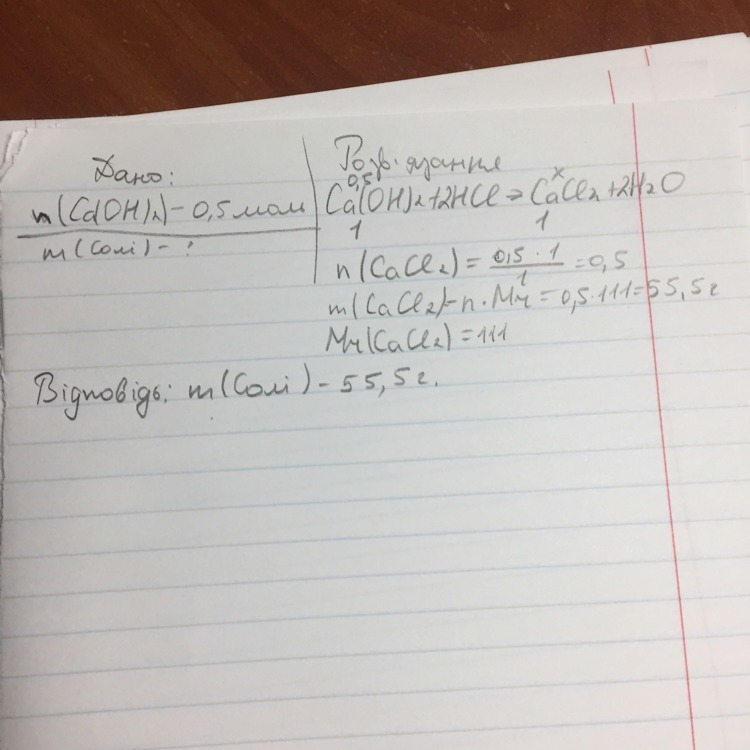 Дано:
n(Ca(OH)₂) - 0,5 моль
m(Солі) - ?
Розв'язання
0,5 x
Ca(OH)₂+2HCl → CaCl₂+2H₂O
1 1
n(CaCl₂) = 0,5 · 1 / 1 = 0,5
m(CaCl₂) = n · Mr = 0,5 · 111 = 55,5 г
Mr(CaCl₂) = 111
Відповідь: m(Солі) - 55,5 г.